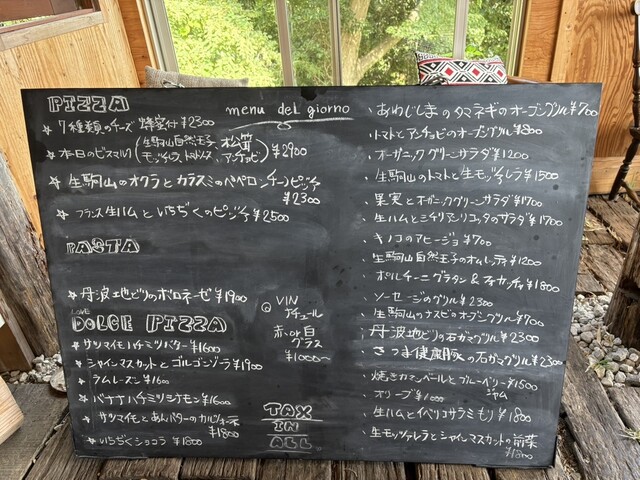 menu del giorno
PIZZA
★ 7種類のチーズ 蜂蜜付 ¥2300
★ 本日のビスマルク(生駒山自然玉子 松茸 モッツァレラ、トマトソース、アンチョビ) ¥2900
★ 生駒山のオクラとカラスミのペペロンチーノピッツァ
¥2300
★ フランス生ハムといちぢくのピッツァ ¥2500
PASTA
★ 丹波地どりのボロネーゼ ¥1900
LOVE
DOLCE PIZZA
★ サツマイモハチミツバター ¥1600
★ シャインマスカットとゴルゴンゾーラ ¥1900
★ ラムレーズン ¥1600
★ バナナハチミツシナモン ¥1600
★ サツマイモとあんバターのカルツォーネ
¥1800
★ いちぢくショコラ ¥1800
VIN
ナチュール
赤 or 白
グラス
¥1000〜
TAX
IN
ALL
、あわじしまのタマネギのオーブングリル ¥700
、トマトとアンチョビのオーブングリル ¥800
、オーガニックグリーンサラダ ¥1200
、生駒山のトマトと生モッツァレラ ¥1500
、果実とオーガニックグリーンサラダ ¥1700
、生ハムとミチリアンリコッタのサラダ ¥1700
、キノコのアヒージョ ¥700
、生駒山自然玉子のオムレッティ ¥1200
、ポルチーニグラタン & フォカッチャ ¥1800
、ソーセージのグリル ¥2300
、生駒山のナスビのオーブングリル ¥700
、丹波地どりの石ガマグリル ¥2300
、さつま健康豚の石ガマグリル ¥2300
、焼きカマンベールとブルーベリージャム ¥1500
、オリーブ ¥1000
、生ハムとイベリコサラミもり ¥1800
、生モッツァレラとシャインマスカットの前菜
¥1800